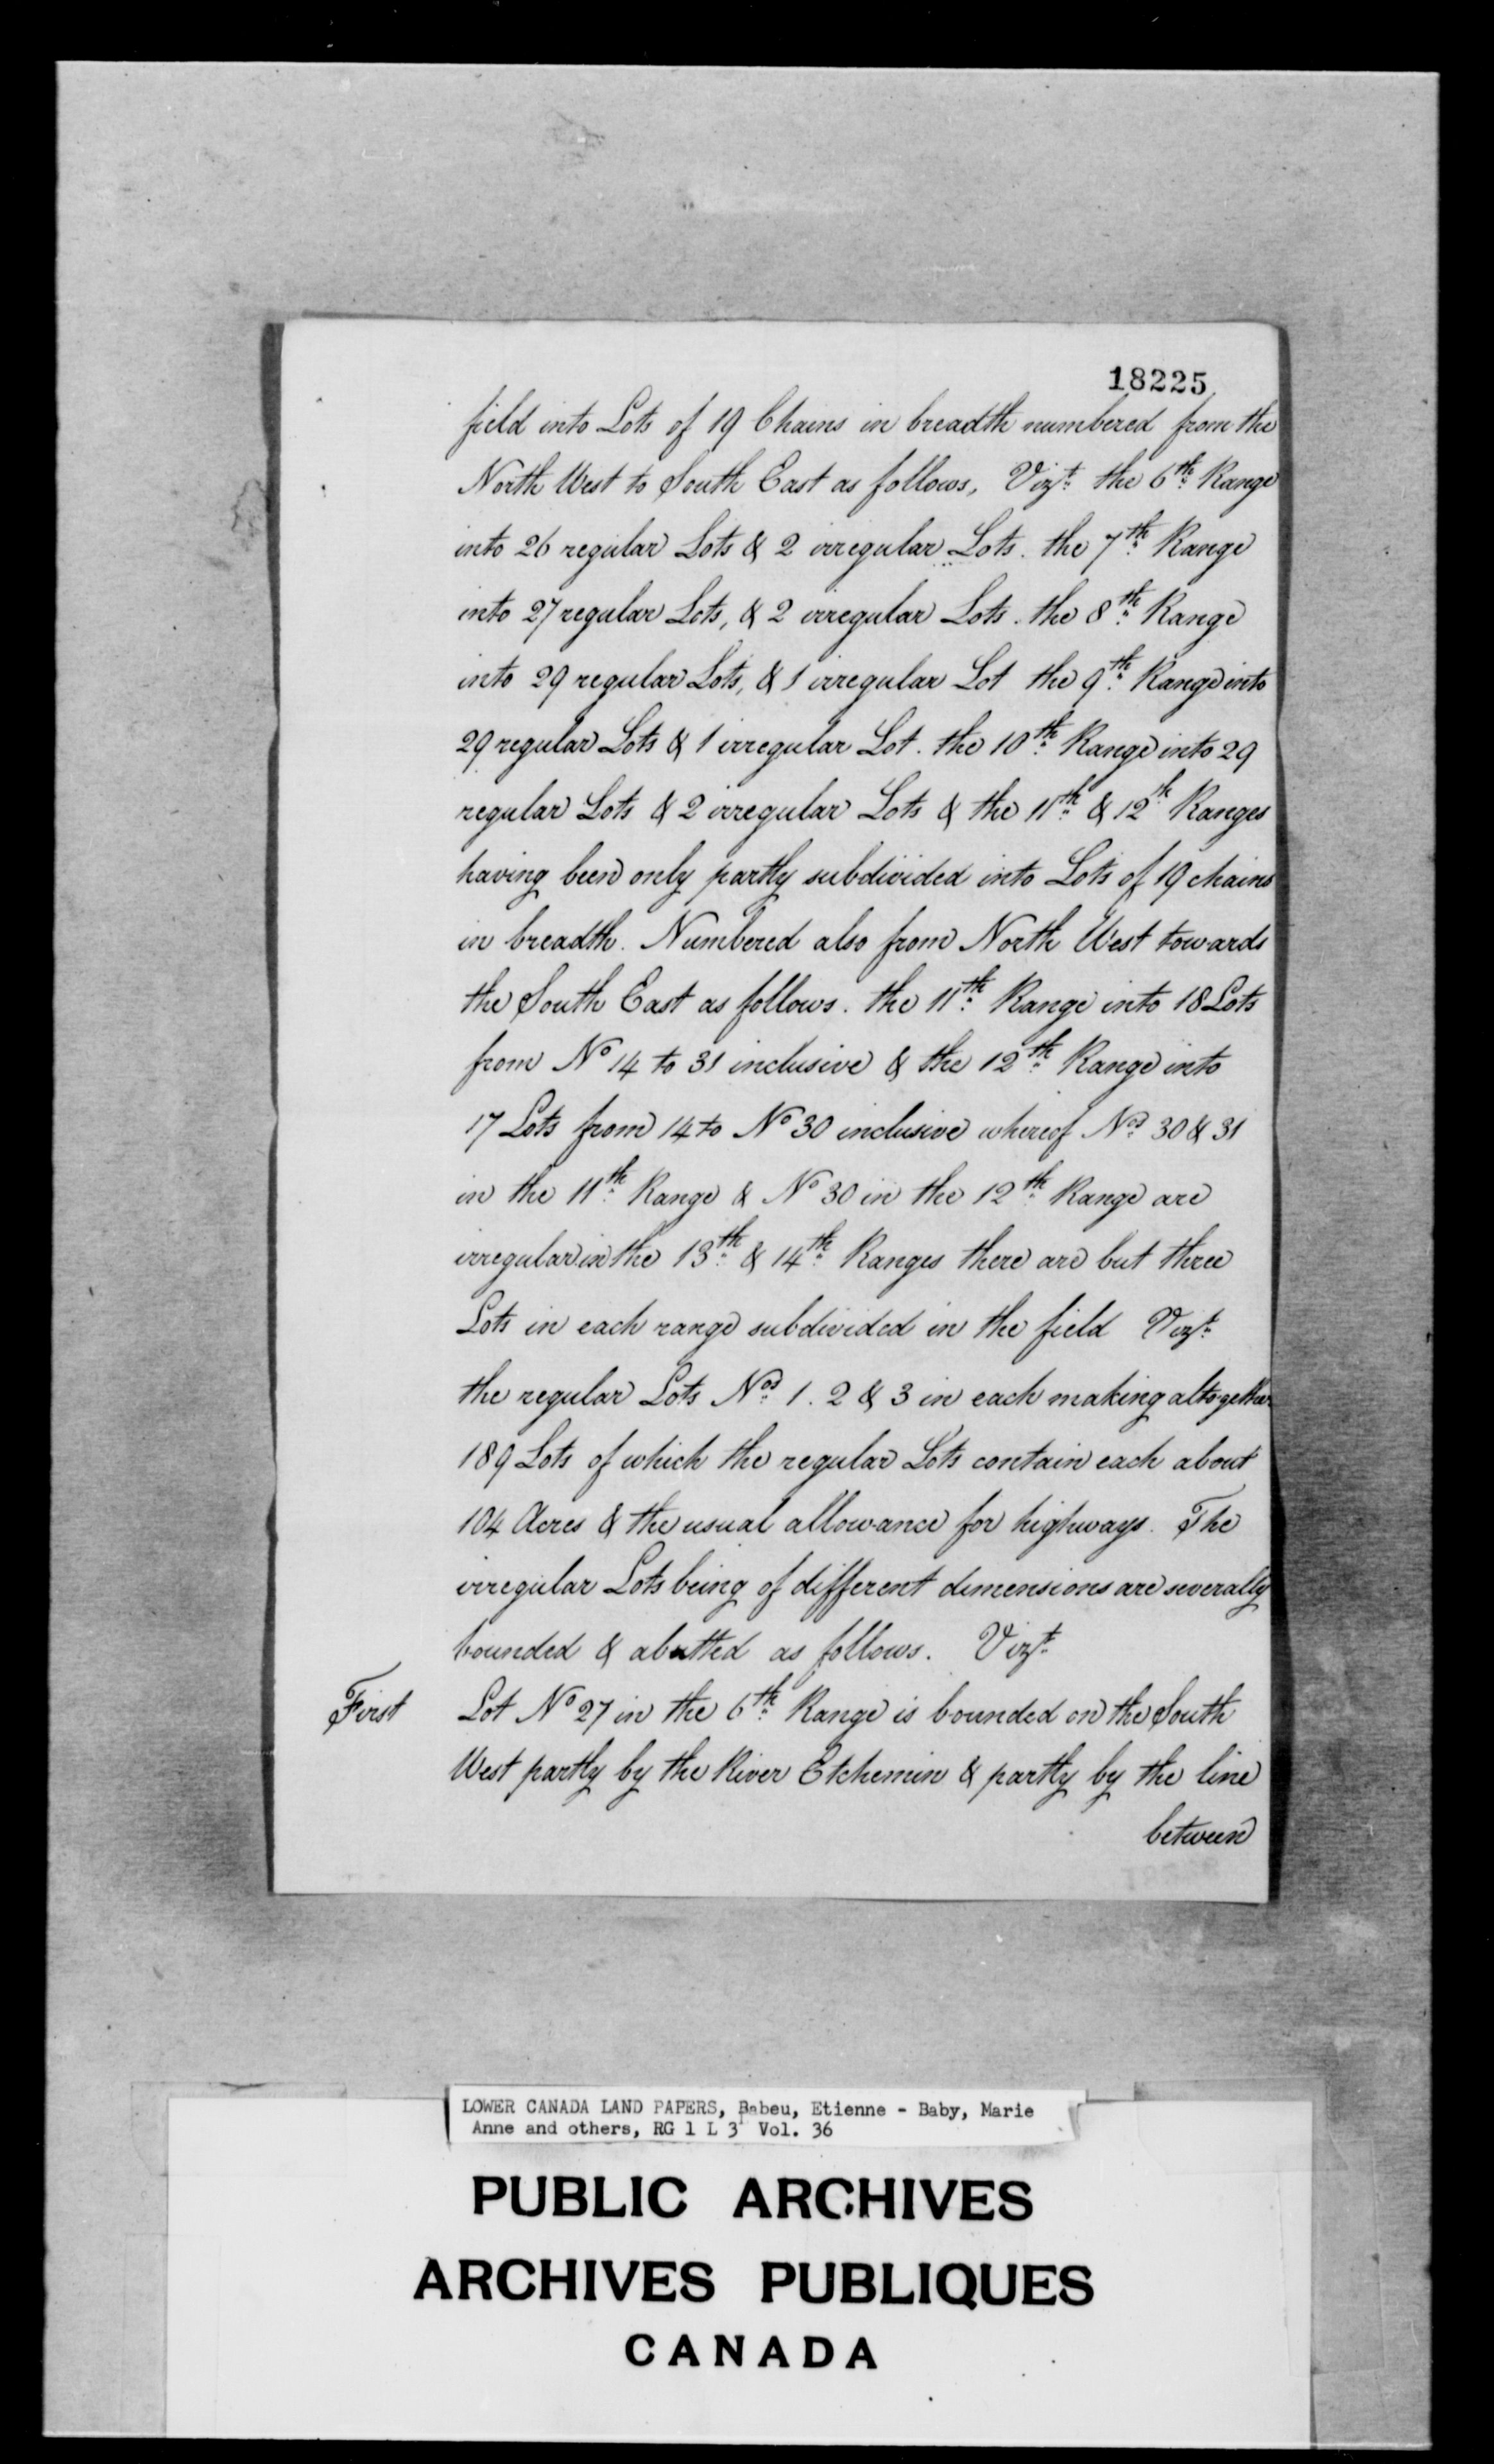 18225
field into Lots of 19 Chains in breadth numbered from the
North West to South East as follows, Vizt. the 6th. Range
into 26 regular Lots & 2 irregular Lots. the 7th. Range
into 27 regular Lots, & 2 irregular Lots. the 8th. Range
into 29 regular Lots, & 1 irregular Lot the 9th. Range into
29 regular Lots & 1 irregular Lot. the 10th. Range into 29
regular Lots & 2 irregular Lots & the 11th. & 12th Ranges
having been only partly subdivided into Lots of 19 chains
in breadth. Numbered also from North West towards
the South East as follows. the 11th. Range into 18 Lots
from No 14 to 31 inclusive & the 12th. Range into
17 Lots from 14 to No 30 inclusive whereof Nos. 30 & 31
in the 11th. Range & No 30 in the 12th. Range are
irregular in the 13th. & 14th. Ranges there are but three
Lots in each range subdivided in the field Vizt.
the regular Lots Nos. 1. 2 & 3 in each making altogether
189 Lots of which the regular Lots contain each about
104 Acres & the usual allowance for highways. The
irregular Lots being of different dimensions are severally
bounded & abutted as follows. Vizt.
First Lot No 27 in the 6th. Range is bounded on the South
West partly by the River Etchemin & partly by the line
between
LOWER CANADA LAND PAPERS, Babeu, Etienne - Baby, Marie
Anne and others, RG 1 L 3 Vol. 36
PUBLIC ARCHIVES
ARCHIVES PUBLIQUES
CANADA